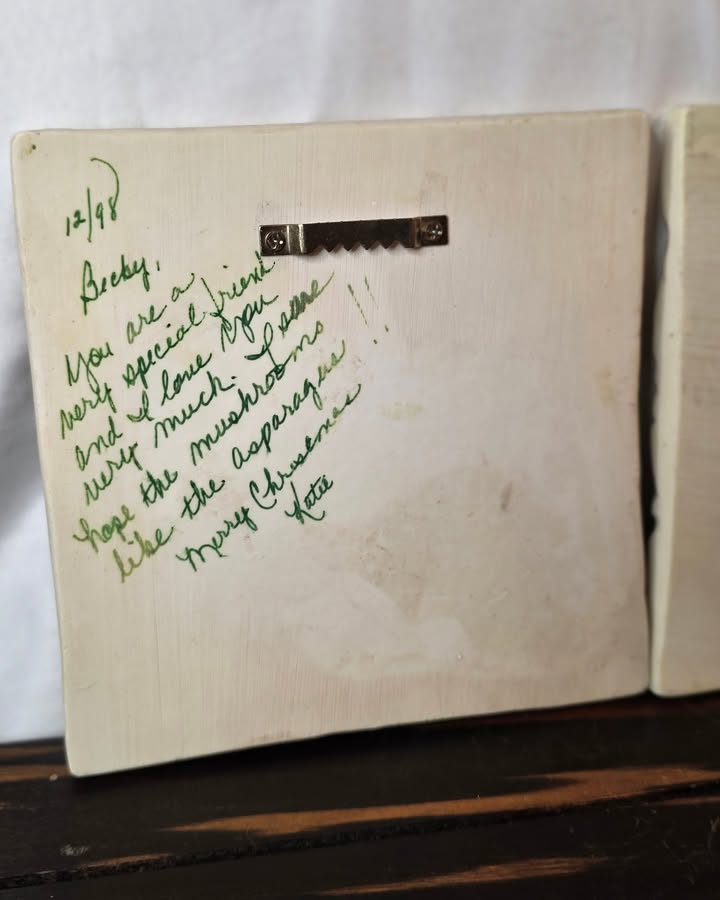 12/98
Becky,
You are a
very special friend
and I love you
very much. I sure
hope the mushrooms
like the asparagus !!
Merry Chrosemas
Katie